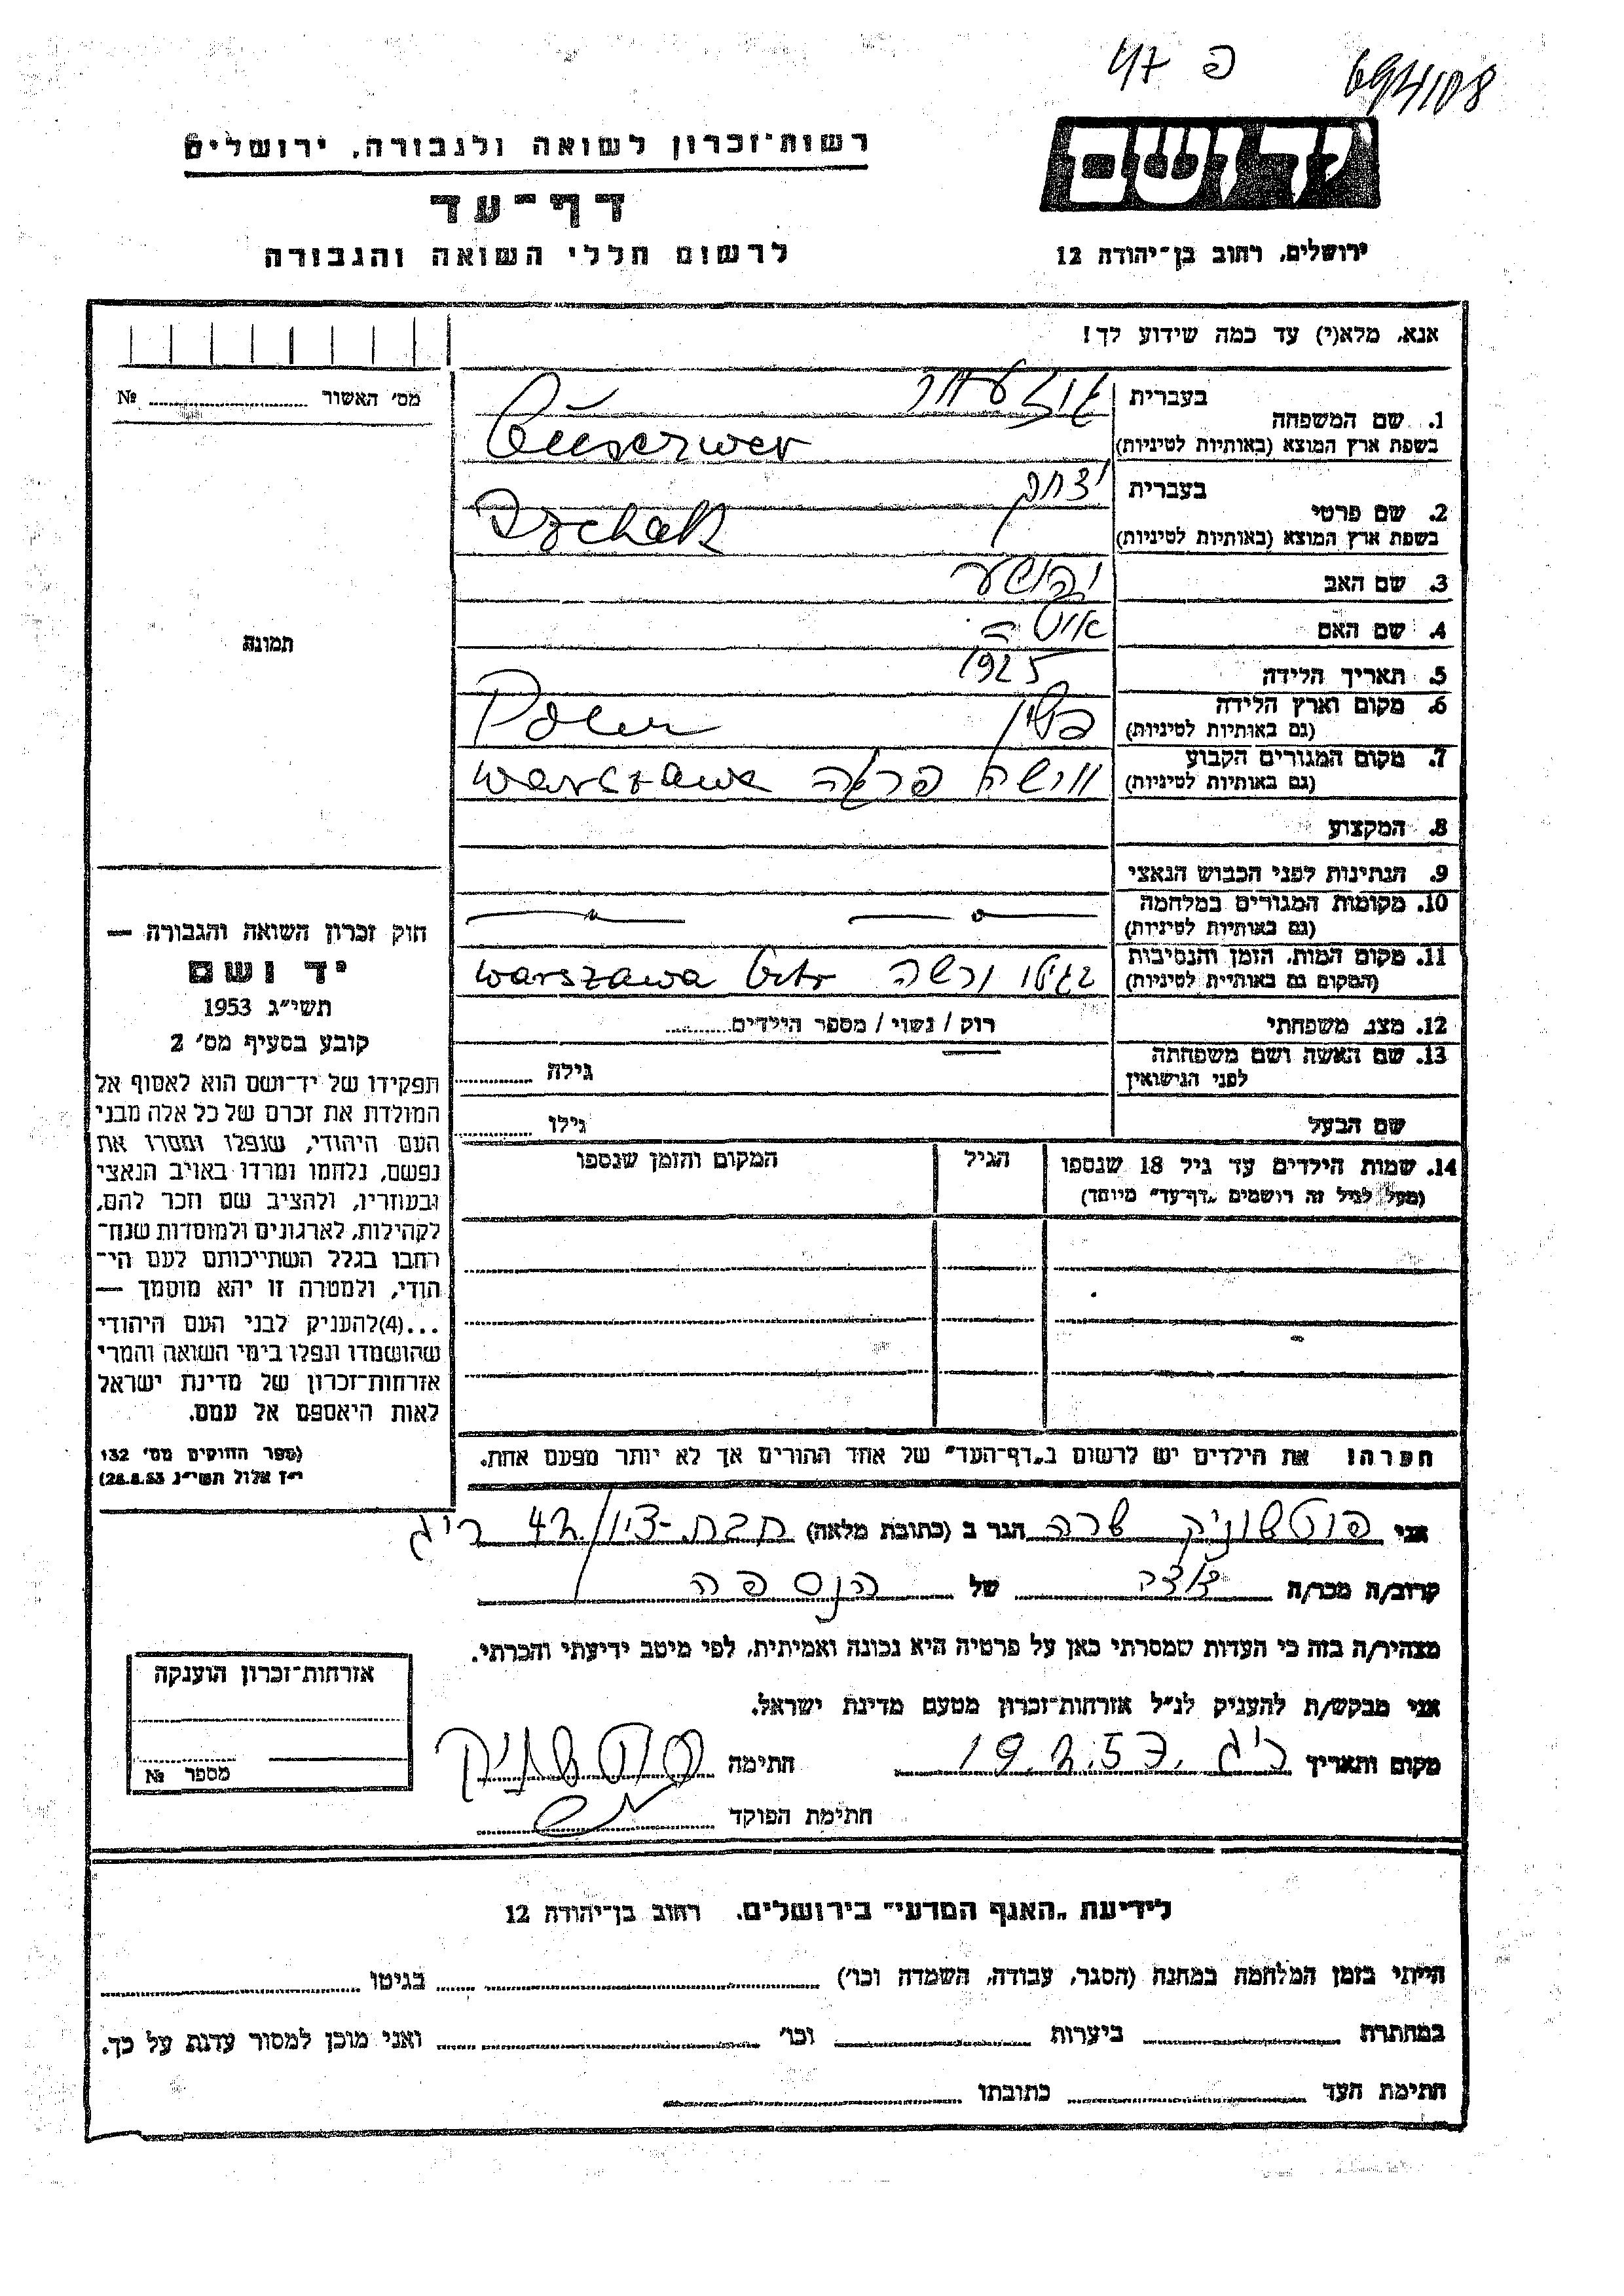 47 פ
694/108
רשות-זכרון לשואה ולגבורה, ירושלים
דף-עד
לרשום חללי השואה והגבורה
יד ושם
ירושלים, רחוב בן-יהודה 12
אנא, מלא(י) עד כמה שידוע לך!
מס' האשור № ....................
1. שם המשפחה
בעברית
בשפת ארץ המוצא (באותיות לטיניות)
2. שם פרטי
בעברית יצחק
בשפת ארץ המוצא (באותיות לטיניות) Izchak
3. שם האב יהושע
4. שם האם
5. תאריך הלידה 1925
6. מקום וארץ הלידה פולין Polen
(גם באותיות לטיניות)
7. מקום המגורים הקבוע וורשה פראגה Warszawa
(גם באותיות לטיניות)
8. המקצוע
9. הנתינות לפני הכבוש הנאצי
10. מקומות המגורים במלחמה
(גם באותיות לטיניות)
11. מקום המות, הזמן והנסיבות בגיטו ורשה warszawa
(המקום גם באותיית לטיניות)
12. מצב משפחתי רוק / נשוי / מספר הילדים..........
13. שם האשה ושם משפחתה
לפני הנישואין
גילה ..........
שם הבעל גילו ..........
14. שמות הילדים עד גיל 18 שנספו
(מעל לגיל זה רושמים „דף-עד" מיוחד)
הגיל
המקום והזמן שנספו
תמונה
חוק זכרון השואה והגבורה —
יד ושם
תשי"ג 1953
קובע בסעיף מס' 2
תפקידו של יד-ושם הוא לאסוף אל
המולדת את זכרם של כל אלה מבני
העם היהודי, שנפלו ומסרו את
נפשם, נלחמו ומרדו באויב הנאצי
ובעוזריו, ולהציב שם וזכר להם,
לקהילות, לארגונים ולמוסדות שנח-
רבו בגלל השתייכותם לעם הי-
הודי, ולמטרה זו יהא מוסמך —
...(4)להעניק לבני העם היהודי
שהושמדו ונפלו בימי השואה והמרי
אזרחות-זכרון של מדינת ישראל
לאות היאספם אל עמם.
(ספר החוקים מס' 132
י"ז אלול תשי"ג 28.8.53)
הערה! את הילדים יש לרשום ב„דף-העד" של אחד ההורים אך לא יותר מפעם אחת.
אני פוטשניק שרה הגר ב (כתובת מלאה) חבת-ציון 42 ר"ג
קרוב/ה מכר/ה של הנספה
מצהיר/ה בזה כי העדות שמסרתי כאן על פרטיה היא נכונה ואמיתית, לפי מיטב ידיעתי והכרתי.
אני מבקש/ת להעניק לנ"ל אזרחות-זכרון מטעם מדינת ישראל.
מקום ותאריך ר"ג חתימה
חתימת הפוקד
אזרחות-זכרון הוענקה
מספר №
לידיעת „האגף המדעי" בירושלים, רחוב בן-יהודה 12
הייתי בזמן המלחמה במחנה (הסגר, עבודה, השמדה וכו') .................... בגיטו ....................
במחתרת .................... ביערות .................... וכו' .................... ואני מוכן למסור עדות על כך.
חתימת העד .................... כתובתו ....................